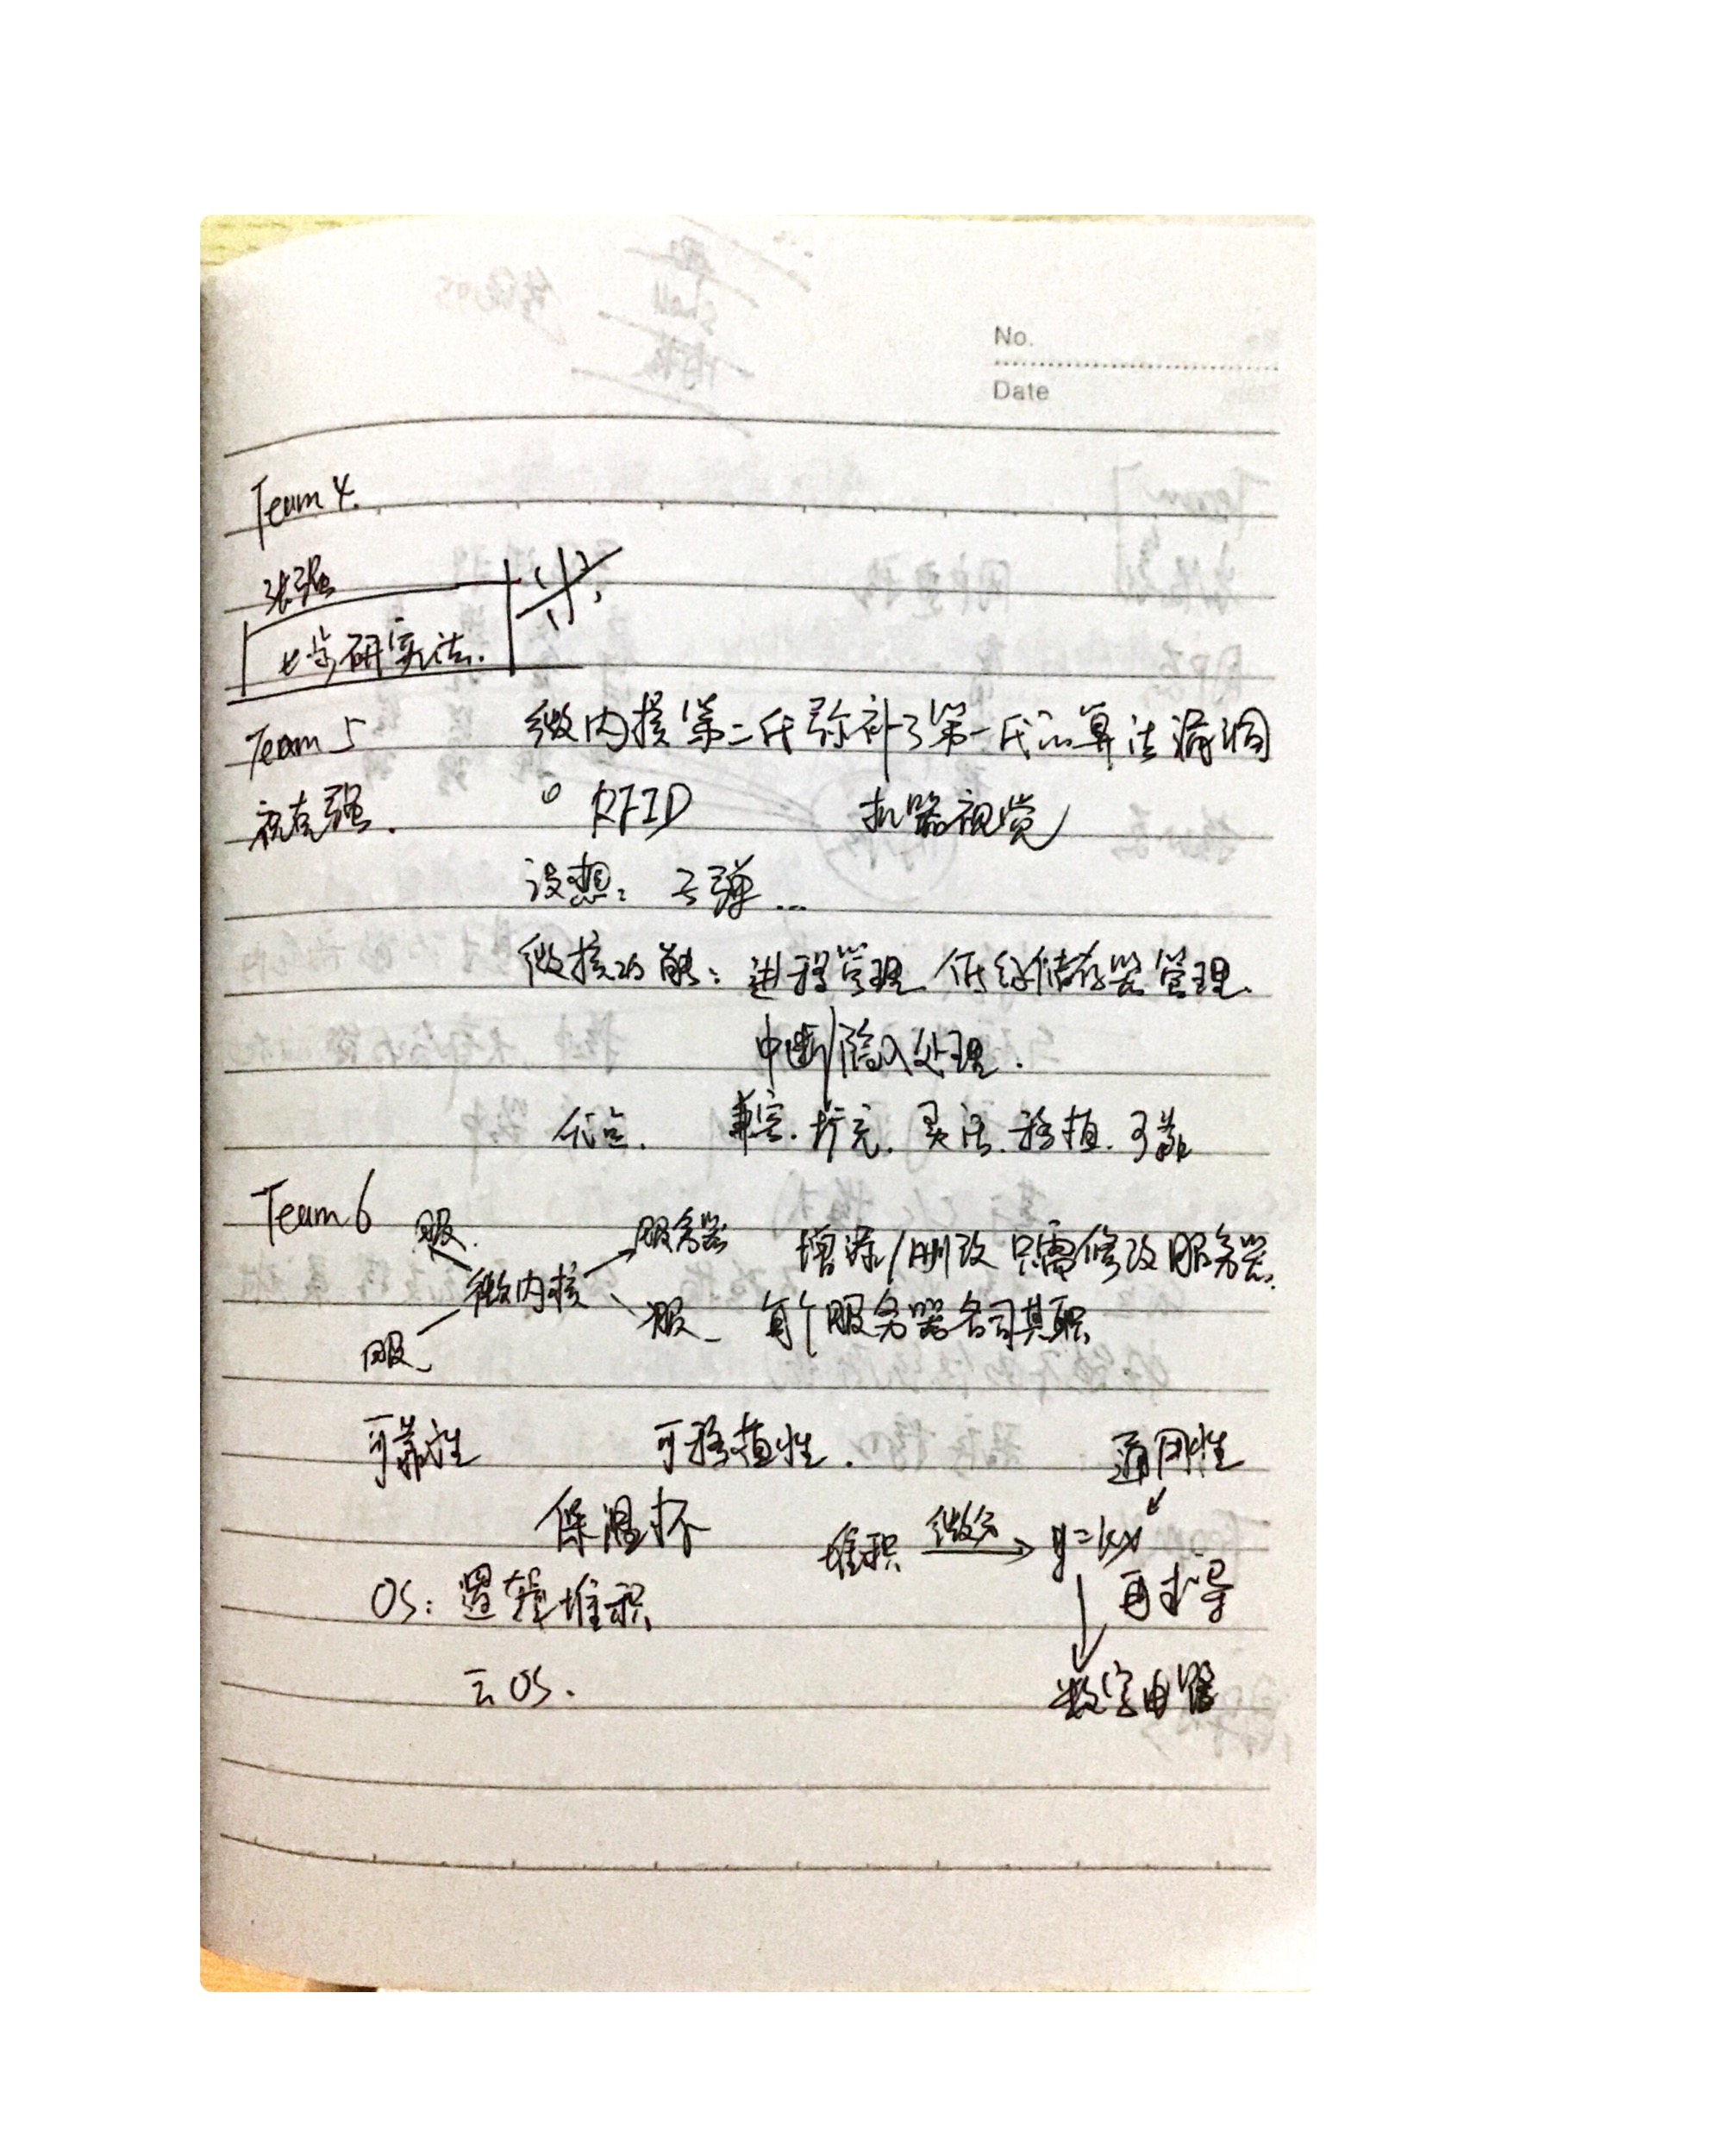 No.
Date
Team 4.
张强
七步研究法.
Team 5 微内核第二代弥补了第一代的算法漏洞
RFID 机器视觉
设想: 子弹...
微核功能: 进程管理 低级储存器管理.
中断/陷入处理.
优点. 兼容. 扩充. 灵活. 移植. 可靠
Team 6 服. 服务器 增添/删改 只需修改服务器.
微内核
服 服 每个服务器各司其职
可靠性 可移植性. 通用性
保温杯 堆积 微分 y=kx
OS: 逻辑堆积 再求导
云OS. 数字电路